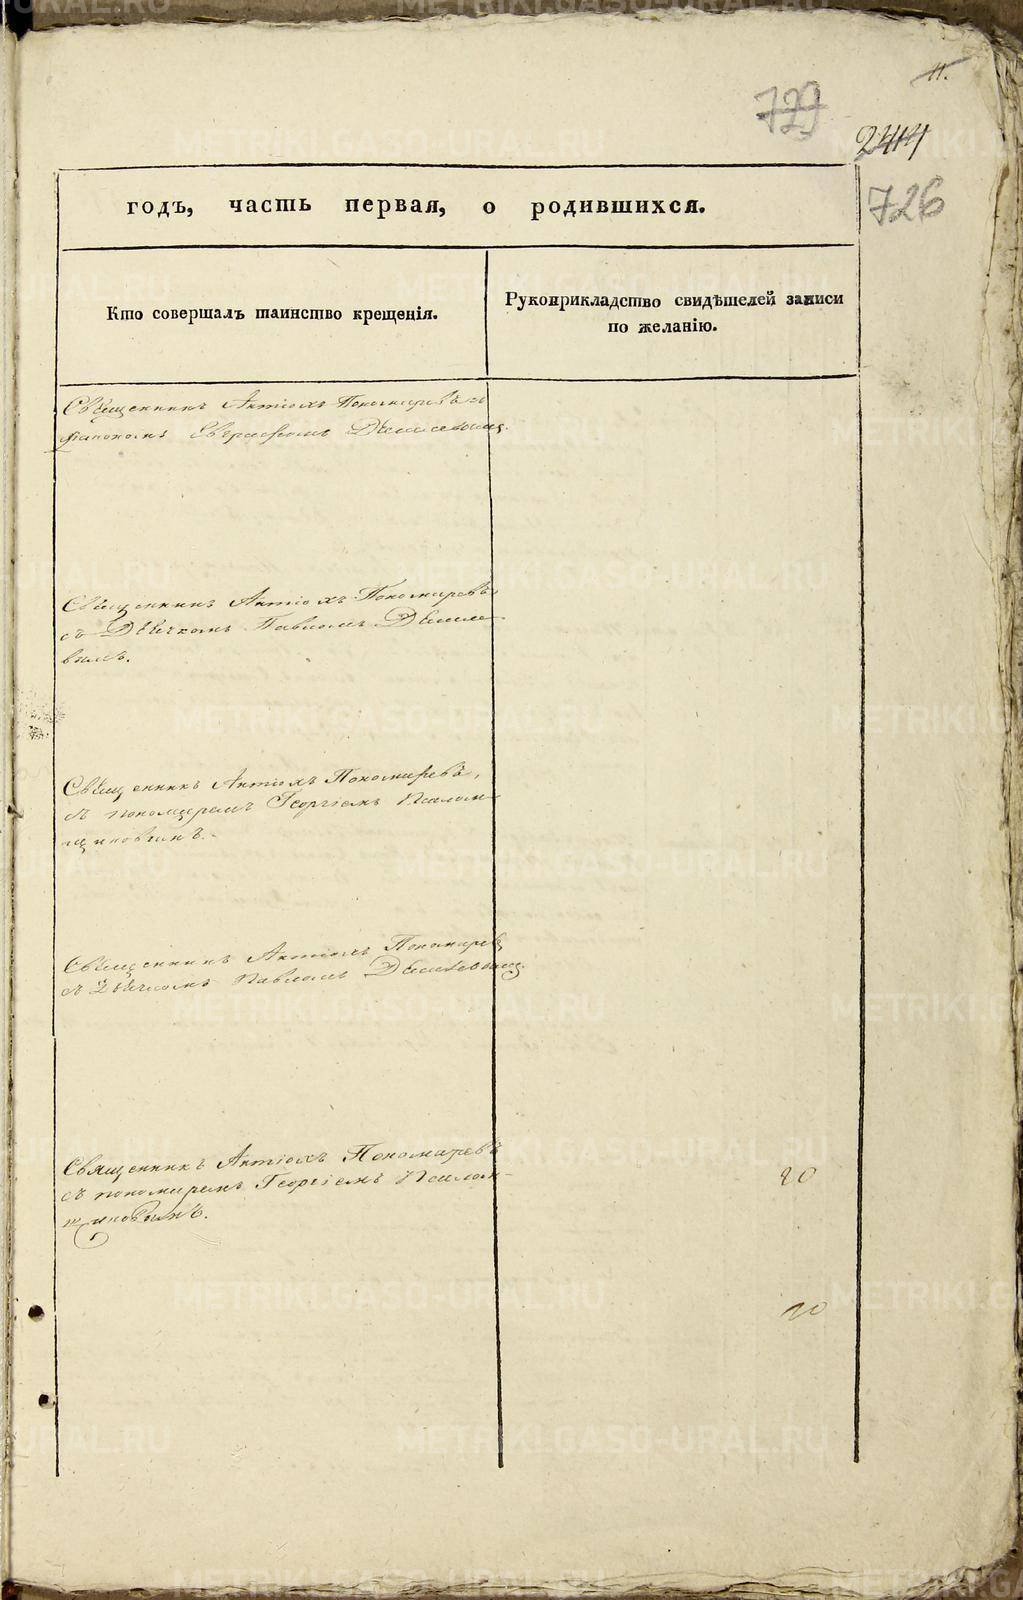 11.
729
2414
726
годъ, часть первая, о родившихся.
Кто совершалъ таинство крещенія.
Рукоприкладство свидѣтелей записи
по желанію.
Священникъ Антіохъ Пономаревъ
діакономъ
Священникъ Антіохъ Пономаревъ
съ Дьячкомъ Павломъ
Священникъ Антіохъ Пономаревъ,
съ пономаремъ Георгіемъ
Священникъ Антіохъ Пономаревъ
съ Дьячкомъ Павломъ
Священникъ Антіохъ Пономаревъ
съ пономаремъ Георгіемъ
20
20
METRIKI.GASO-URAL.RU